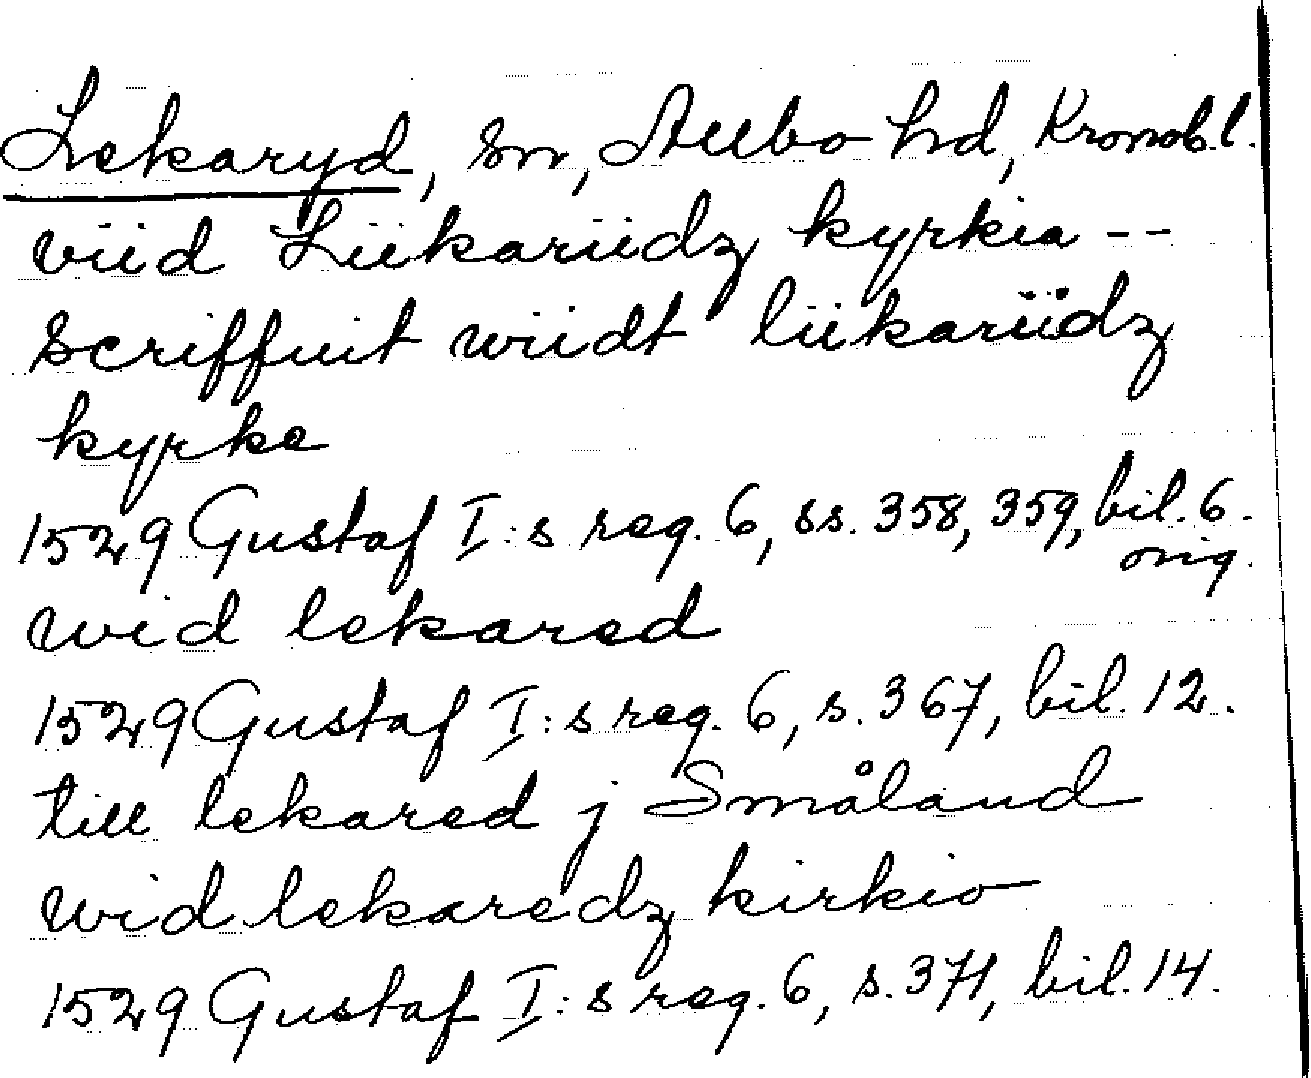 Lekaryd, sn, Allbo hd, Kronob.l.
viid Liikariidz kyrkia --
Scriffuit wiidt liikariidz
kyrke
1529 Gustaf I:s reg. 6, ss. 358, 359, bil. 6.
orig.
wid lekared
1529 Gustaf I:s reg. 6, s. 367, bil. 12.
till lekared j Småland
wid lekaredz kirkio
1529 Gustaf I:s reg. 6, s. 371, bil. 14.